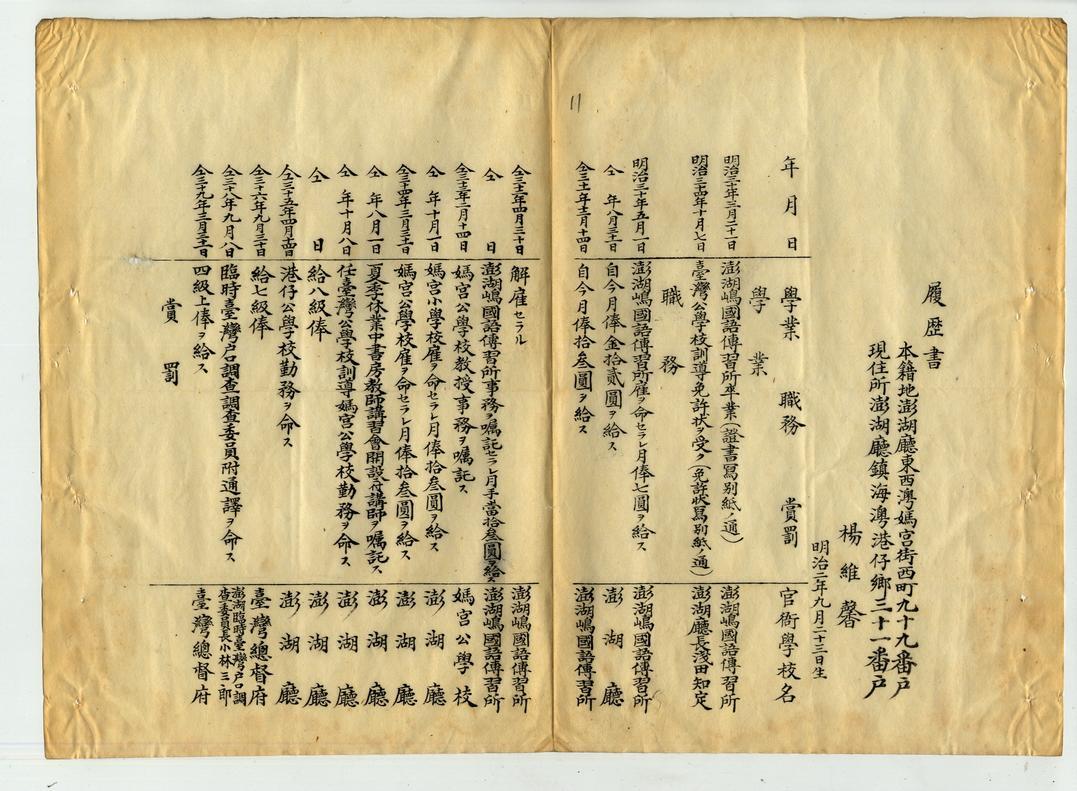 11
履歴書
本籍地澎湖廳東西澳媽宮街西町九十九番戸
現住所澎湖廳鎮海澳港仔鄉三十一番戸
楊維馨
明治二年九月二十三日生
年月日 學業 職務 賞罰 官衙學校名
學業
明治三十年三月二十一日 澎湖嶋國語傳習所卒業(證書寫別紙ノ通) 澎湖嶋國語傳習所
明治三十四年十月七日 臺灣公學校訓導免許状ヲ受ク(免許状寫別紙ノ通) 澎湖廳長浅田知定
職務
明治三十年五月一日 澎湖嶋國語傳習所雇ヲ命セラレ月俸七圓ヲ給ス 澎湖嶋國語傳習所
仝 年八月三十日 自今月俸金拾貳圓ヲ給ス 澎湖廳
仝三十一年十二月十四日 自今月俸拾叁圓ヲ給ス 澎湖嶋國語傳習所
仝三十二年四月三十日 解雇セラル 澎湖嶋國語傳習所
仝 日 澎湖嶋國語傳習所事務ヲ嘱託セラレ月手當拾叁圓ヲ給ス 澎湖嶋國語傳習所
仝三十三年二月十四日 媽宮公學校教授事務ヲ嘱託ス 媽宮公學校
仝 年十月一日 媽宮小學校雇ヲ命セラレ月俸拾叁圓ヲ給ス 澎湖廳
仝三十四年三月三十一日 媽宮公學校雇ヲ命セラレ月俸拾叁圓ヲ給ス 澎湖廳
仝 年八月一日 夏季休業中書房教師講習會開設ニ付講師ヲ嘱託ス 澎湖廳
仝 年十月八日 任臺灣公學校訓導媽宮公學校勤務ヲ命ス 澎湖廳
仝 日 給八級俸 澎湖廳
仝三十五年四月十四日 港仔公學校勤務ヲ命ス 澎湖廳
仝三十六年九月三十日 給七級俸 臺灣總督府
仝三十八年九月八日 臨時臺灣戸口調查調查委員附通譯ヲ命ス 澎湖臨時臺灣戸口調查委員長小林三郎
仝三十九年三月三十一日 四級上俸ヲ給ス 臺灣總督府
賞罰